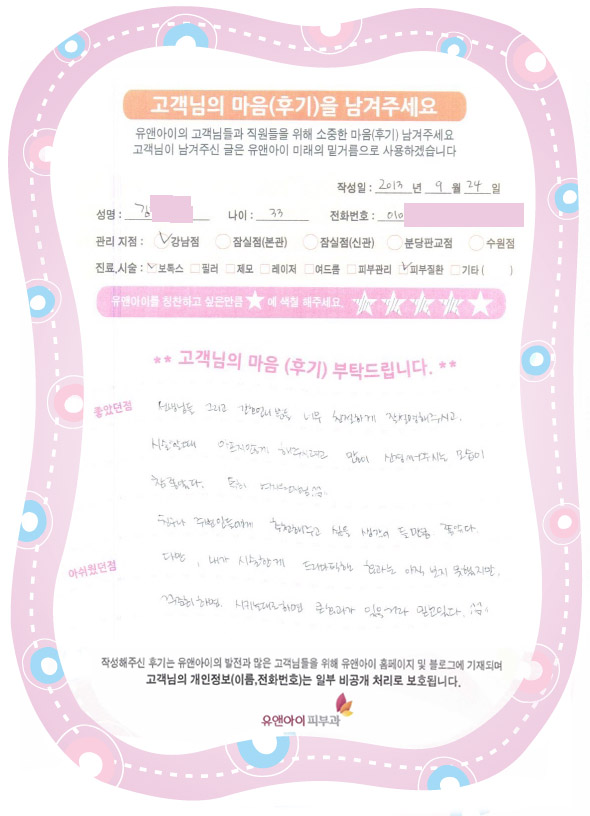 고객님의 마음(후기)을 남겨주세요
유앤아이의 고객님들과 직원들을 위해 소중한 마음(후기) 남겨주세요
고객님이 남겨주신 글은 유앤아이 미래의 밑거름으로 사용하겠습니다
작성일 : 2013 년 9 월 24 일
성명 : 강 나이 : 33 전화번호 : 010
관리 지점 : 강남점 잠실점(본관) 잠실점(신관) 분당판교점 수원점
진료,시술 : 보톡스 필러 제모 레이저 여드름 피부관리 피부질환 기타 ( )
유앤아이를 칭찬하고 싶은만큼 ★ 에 색칠 해주세요.
** 고객님의 마음 (후기) 부탁드립니다. **
좋았던점
그리고 너무 친절하게 해주시고.
시술할때 아프지않게 많이 모습이
참 좋았다. 특히
친구나 주변인들에게 추천해주고 싶을 생각이 들만큼 좋았다.
아쉬웠던점
다만, 내가 시술한게 효과는 아직 보지 못했지만,
꾸준히하면, 시키는대로하면 큰효과가 있을거라 믿고있다.
작성해주신 후기는 유앤아이의 발전과 많은 고객님들을 위해 유앤아이 홈페이지 및 블로그에 기재되며
고객님의 개인정보(이름,전화번호)는 일부 비공개 처리로 보호됩니다.
유앤아이 피부과